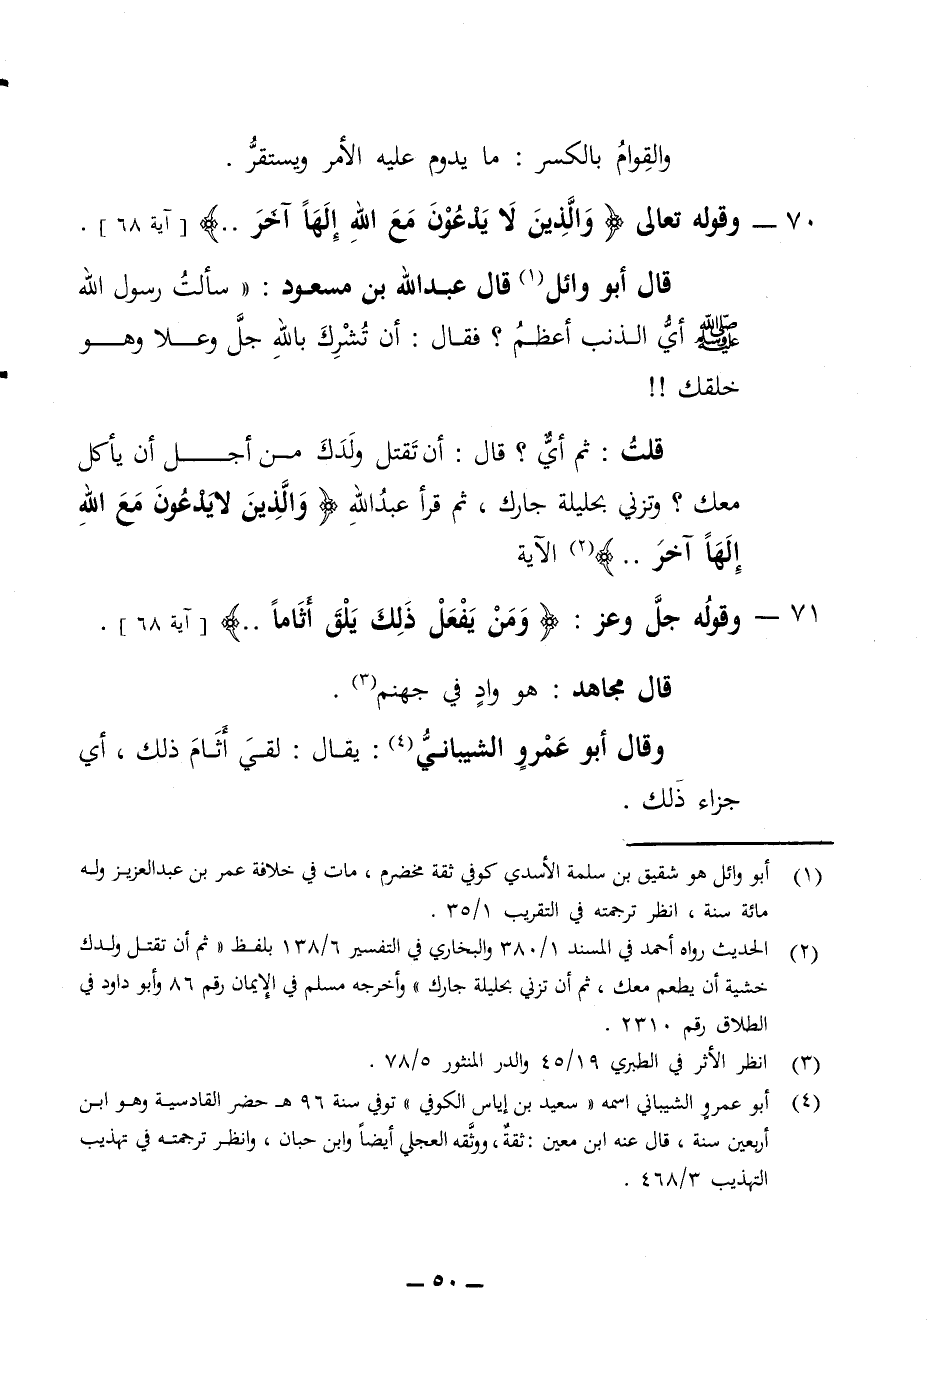 والقِوامُ بالكسر : ما يدوم عليه الأمر ويستقرُّ .
٧٠ — وقوله تعالى ﴿ وَالَّذِينَ لَا يَدْعُوْنَ مَعَ اللهِ إِلَهَاً آخَرَ ..﴾ [ آية ٦٨ ] .
قال أبو وائل(١) قال عبدالله بن مسعود : « سألتُ رسول الله
ﷺ أيُّ الذنب أعظمُ ؟ فقال : أن تُشْرِكَ باللهِ جلَّ وعلا وهو
خلقك !!
قلتُ : ثم أيٌّ ؟ قال : أن تَقتل ولَدَكَ من أجل أن يأكل
معك ؟ وتزني بحليلة جارك ، ثم قرأ عبدُاللهِ ﴿ وَالَّذِينَ لايَدْعُونَ مَعَ اللهِ
إِلَهَاً آخرَ .. ﴾(٢) الآية
٧١ — وقولُه جلَّ وعز : ﴿ وَمَنْ يَفْعَلْ ذَلِكَ يَلْقَ أَثَاماً ..﴾ [ آية ٦٨ ] .
قال مجاهد : هو وادٍ في جهنم(٣) .
وقال أبو عَمْروٍ الشيبانيُّ(٤) : يقال : لقيَ أَثَامَ ذلك ، أي
جزاء ذَلك .
(١) أبو وائل هو شقيق بن سلمة الأسدي كوفي ثقة مخضرم ، مات في خلافة عمر بن عبدالعزيز وله
مائة سنة ، انظر ترجمته في التقريب ٣٥/١ .
(٢) الحديث رواه أحمد في المسند ٣٨٠/١ والبخاري في التفسير ١٣٨/٦ بلفظ « ثم أن تقتل ولدك
خشية أن يطعم معك ، ثم أن تزني بحليلة جارك » وأخرجه مسلم في الإيمان رقم ٨٦ وأبو داود في
الطلاق رقم ٢٣١٠ .
(٣) انظر الأثر في الطبري ٤٥/١٩ والدر المنثور ٧٨/٥ .
(٤) أبو عمروٍ الشيباني اسمه « سعيد بن إياس الكوفي » توفي سنة ٩٦ هـ حضر القادسية وهو ابن
أربعين سنة ، قال عنه ابن معين : ثقةٌ ، ووثَّقه العجلي أيضاً وابن حبان ، وانظر ترجمته في تهذيب
التهذيب ٤٦٨/٣ .
— ٥٠ —